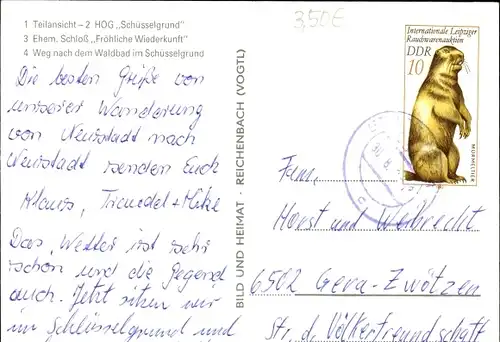 1 Teilansicht – 2 HOG „Schüsselgrund"
3 Ehem. Schloß „Fröhliche Wiederkunft"
4 Weg nach dem Waldbad im Schüsselgrund
3,50€
Internationale Leipziger
Rauchwarenauktion
DDR
10
MURMELTIER
Die besten Grüße von
unserer Wanderung
von Neustadt nach
Neustadt senden Euch
Klaus, Traudel + Mike
Das Wetter ist sehr
schön und die Gegend
auch. Jetzt sitzen wir
im Schlüsselgrund und
BILD UND HEIMAT · REICHENBACH (VOGTL)
Fam.
Horst und
6502 Gera-Zwötzen
Str. d. Völkerfreundschaft